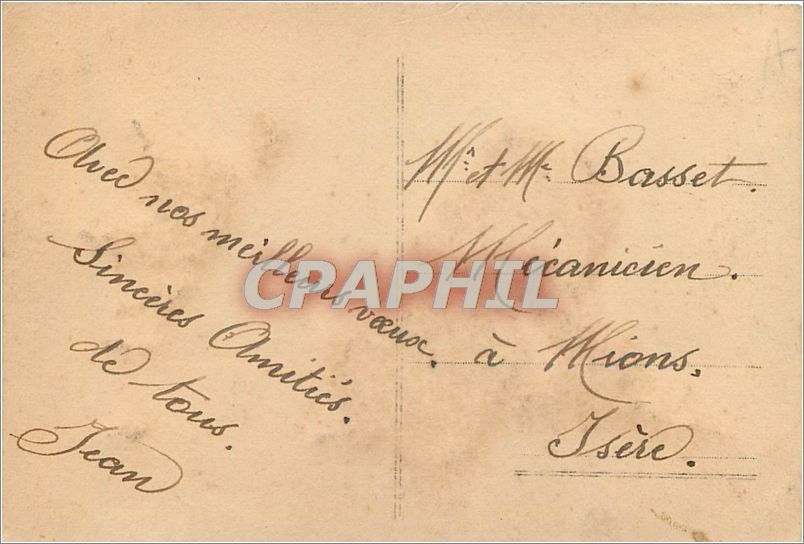 Avec nos meilleurs vœux.
Sincères Amitiés.
de tous.
Jean
Mr. et Me. Basset.
Mécanicien.
à Mions.
Isère.
CPAPHIL
A